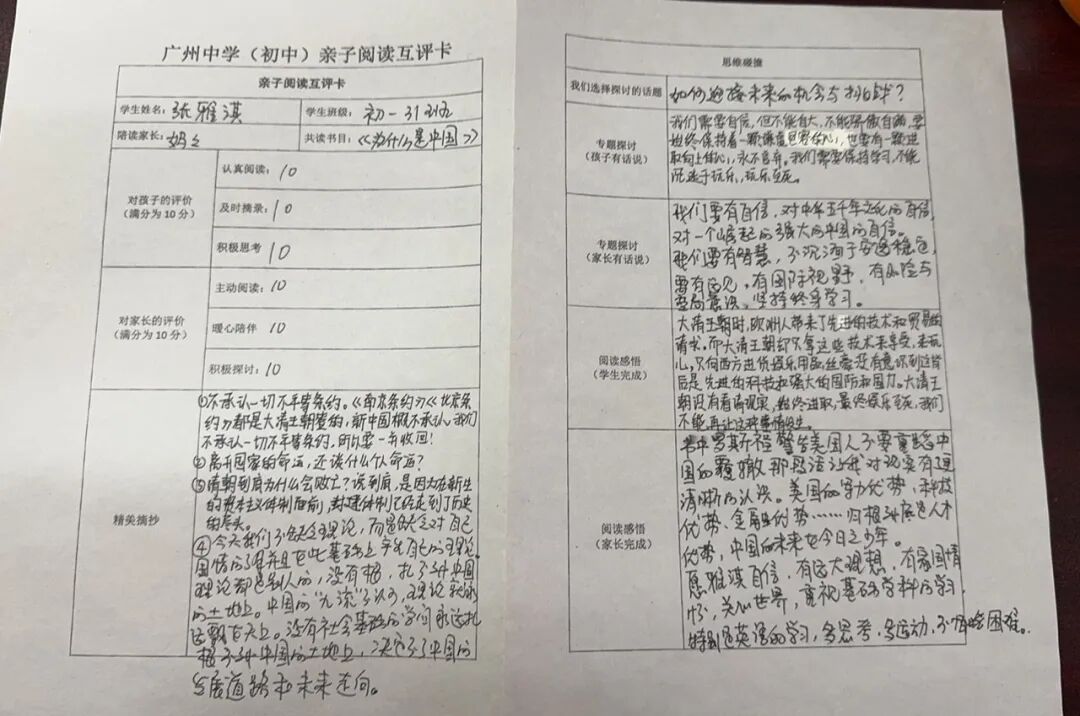 广州中学（初中）亲子阅读互评卡
亲子阅读互评卡
学生姓名：张雅淇
学生班级：初一31班
陪读家长：妈妈
共读书目：《为什么是中国》
对孩子的评价
（满分为10分）
认真阅读：10
及时摘录：10
积极思考 10
对家长的评价
（满分为10分）
主动阅读：10
暖心陪伴 10
积极探讨：10
精美摘抄
①不承认一切不平等条约。《南京条约》《北京条
约》都是大清王朝签的，新中国概不承认。我们
不承认一切不平等条约。所以要一并收回！
②离开国家的命运，还谈什么个人命运？
③清朝到底为什么会败亡？说到底，是因为在新生
的资本主义体制面前，封建体制已经走到了历史
的尽头。
④今天我们不缺乏理论，而是缺乏对自己
国情的了解并且在此基础上产生自己的理论。
理论都是别人的，没有根，扎不到中国
的土地上。中国的“九流”
飘在天上。没有社会基础的学问永远扎
根不到中国的土地上，决定不了中国的
发展道路和未来走向。
思维碰撞
我们选择探讨的话题
如何迎接未来的机会与挑战？
专题探讨
（孩子有话说）
我们需要自信，但不能自大，不能骄傲自满，要
始终保持着一颗谦虚包容的心，也要有一颗进
取向上的心，永不言弃。我们需要保持学习，不能
沉迷于玩乐，玩乐至死。
专题探讨
（家长有话说）
我们要有自信，对中华五千年文化的自信，
对一个崛起的强大的中国的自信。
我们要有智慧，不沉湎于安逸稳定，
要有远见，有国际视野，有风险与
意识。坚持终身学习。
阅读感悟
（学生完成）
大清王朝时，欧洲人带来了先进的技术和贸易的
请求。而大清王朝却只拿这些技术来享受，来玩
儿，只向西方进货娱乐用品，丝毫没有意识到这背
后是先进的科技和强大的国防和国力。大清王
朝没有看清现实，始终进取，最终娱乐至死。我们
不能再让这种事情发生。
阅读感悟
（家长完成）
书中罗斯福警告美国人不要重蹈中
国的覆辙那段话让我对现实有更
清晰的认识。美国的军力优势、科技
优势、金融优势……归根到底是人才
优势，中国的未来在今日之少年。
愿雅淇自信，有远大理想，有家国情
怀，关心世界，重视基础学科的学习
特别是英语的学习，多思考，多运动，不畏惧困难。